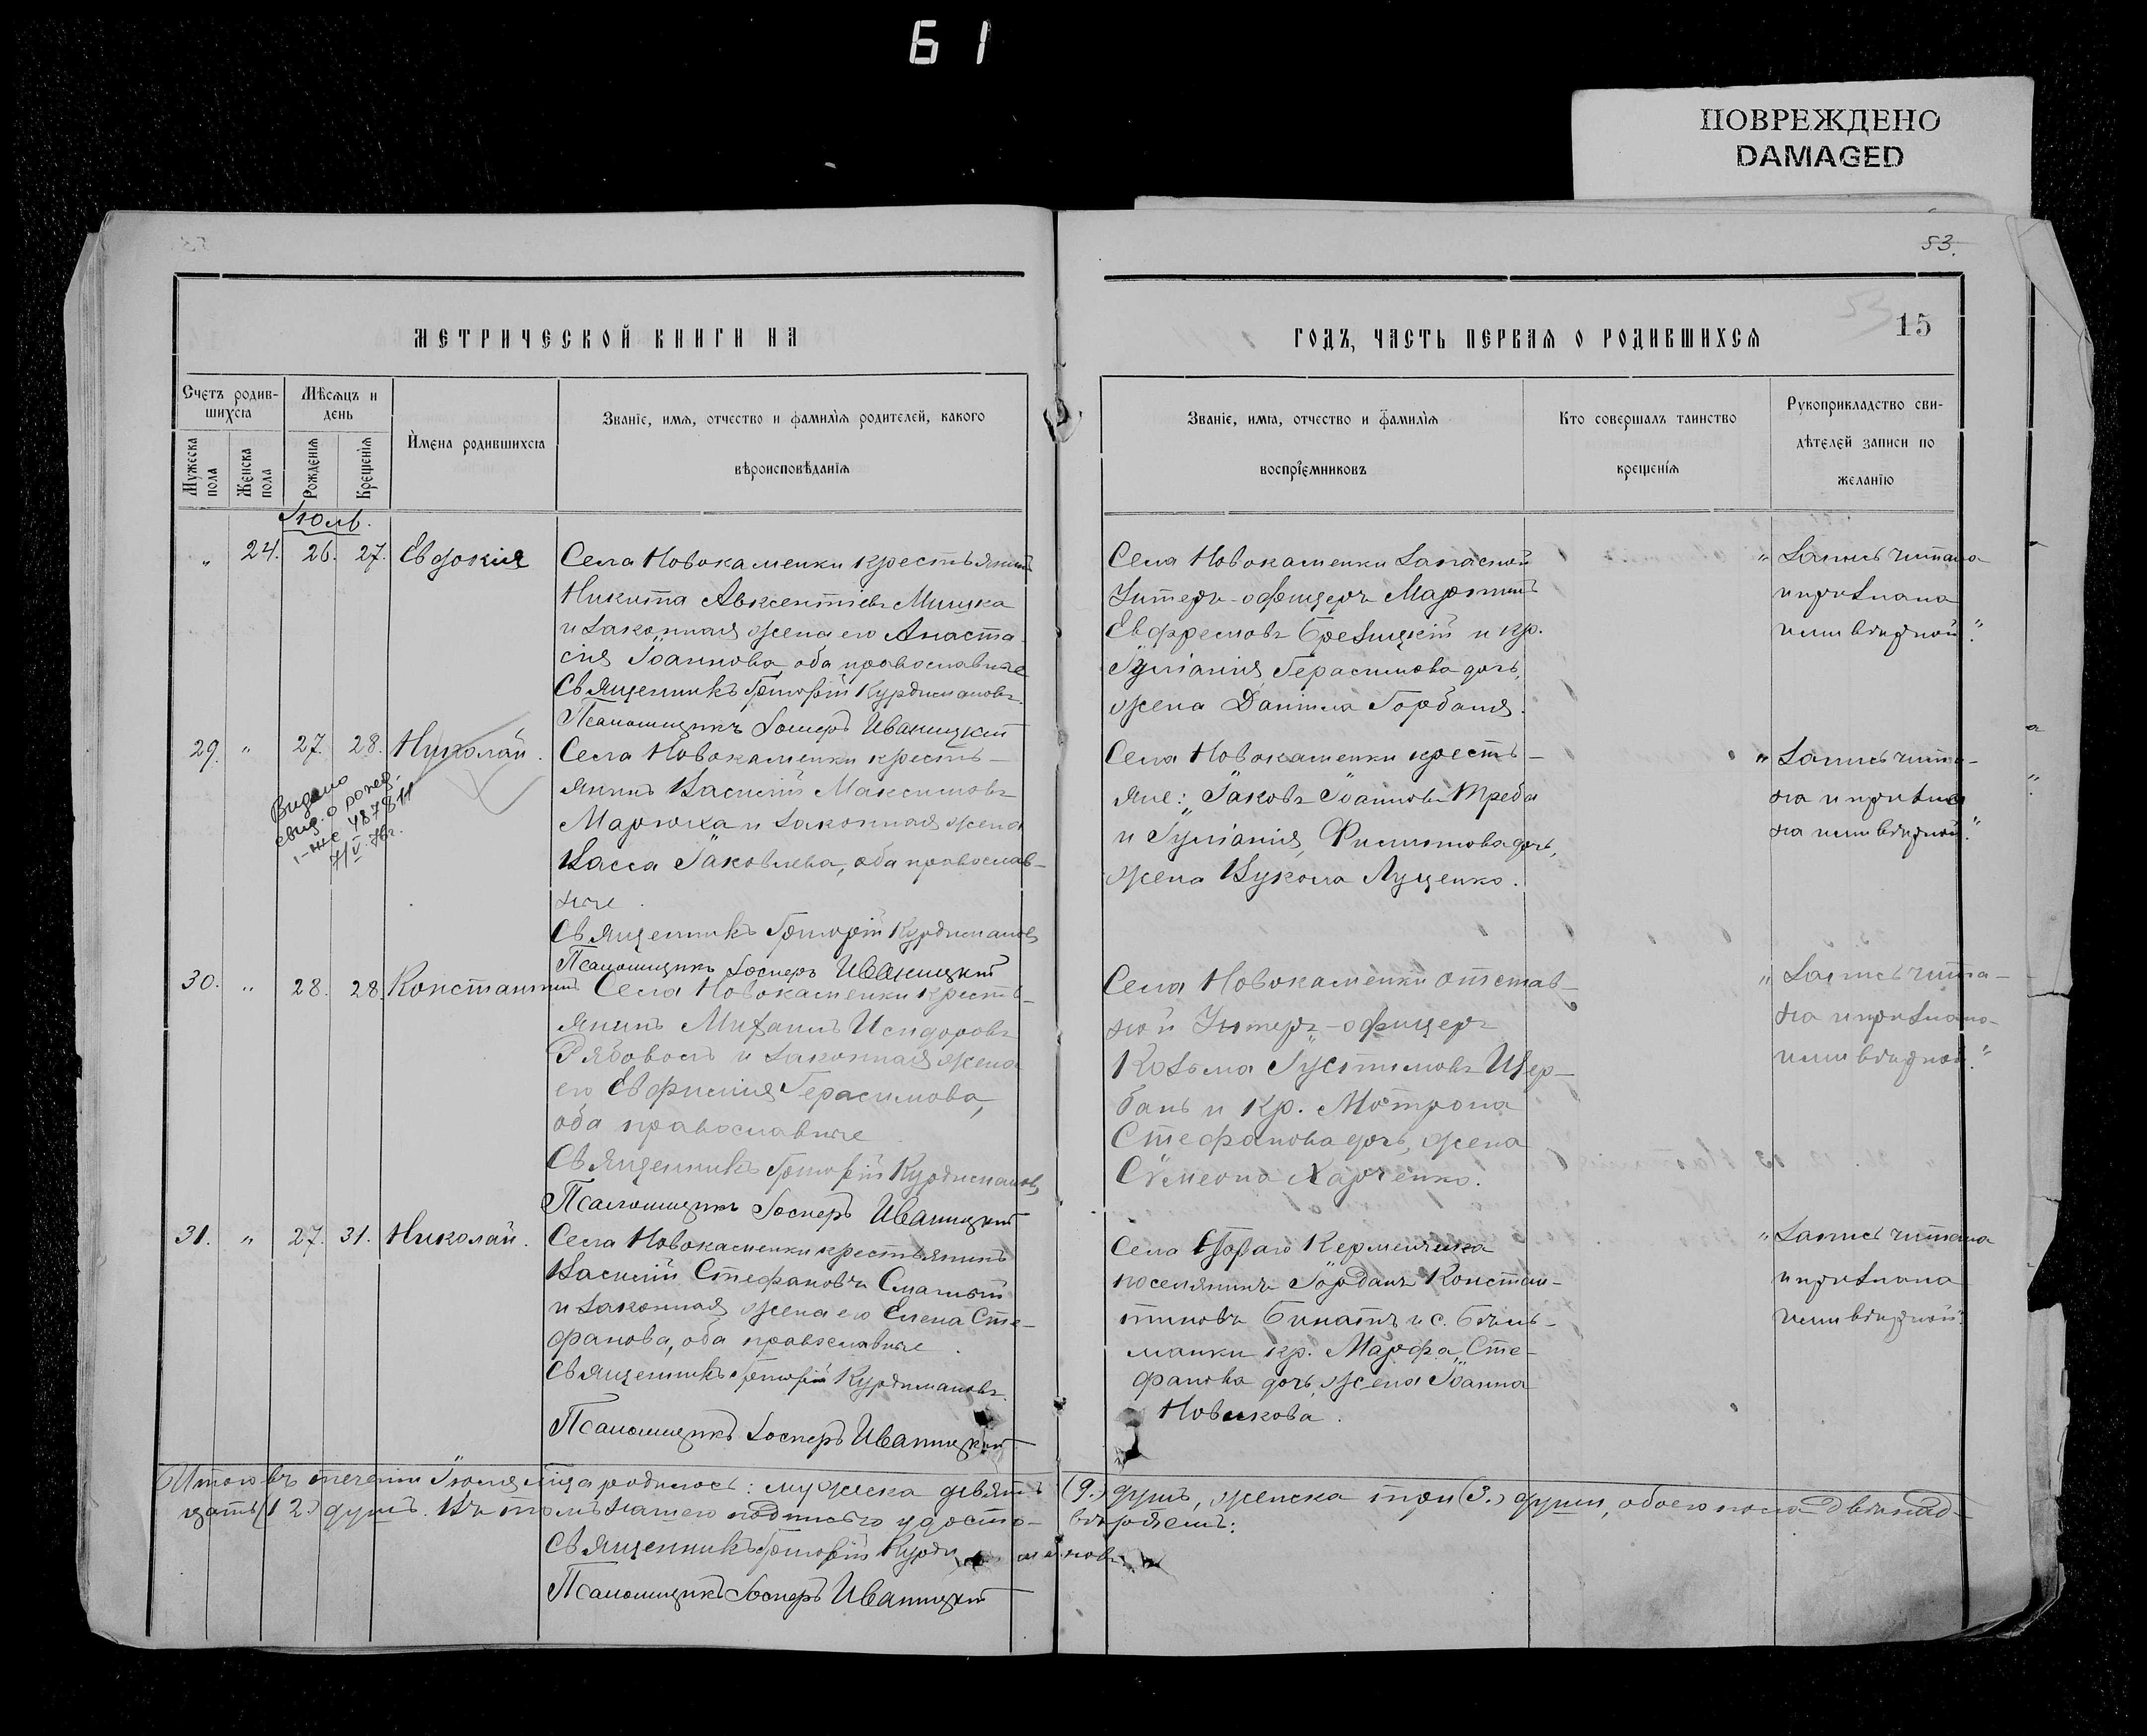 Б 1
ПОВРЕЖДЕНО
DAMAGED
53.
53
15
МЕТРИЧЕСКОЙ КНИГИ НА
ГОДЪ, ЧАСТЬ ПЕРВАЯ О РОДИВШИХСЯ
Счетъ родив-
шихся
Мѣсяцъ и
день
Мужеска
пола
Женска
пола
Рожденія
Крещенія
Имена родившихся
Званіе, имя, отчество и фамилія родителей, какого
вѣроисповѣданія
Званіе, имя, отчество и фамилія
воспріемниковъ
Кто совершалъ таинство
крещенія
Рукоприкладство сви-
дѣтелей записи по
желанію
Іюль.
„ 24. 26. 27. Евдокія
Села Новокаменки крестьянинъ
Никита Авксентіевъ Мишка
и законная жена его Анаста-
сія Іоаннова, оба православные
Священникъ Григорій Курдимановъ.
Псаломщикъ Іосифъ Иваницкій
Села Новокаменки Запасной
Унтеръ-офицеръ Мартинъ
и кр.
Іуліанія Герасимова дочь,
жена Даніила Горбаня.
„Запись читана
и признана
имъ вѣрной."
29. „ 27. 28. Николай.
Выдано
свид. о рожд.
1-ЖС 487811
7/V.76г.
Села Новокаменки кресть-
янинъ Василій Максимовъ
Марюха и законная жена
Васса Іаковлева, оба православ-
ные.
Священникъ Григорій Курдимановъ
Псаломщикъ Іосифъ Иваницкій
Села Новокаменки кресть-
яне: Іаковъ Іоанновъ Треба
и Іуліанія Филиппова дочь,
жена Вукола Луценко.
„Запись чита-
на и призна
на имъ вѣрной."
30. „ 28. 28. Константинъ
Села Новокаменки кресть-
янинъ Михаилъ Исидоровъ
Рябоволъ и законная жена
его Евфимія Герасимова,
оба православные
Священникъ Григорій Курдимановъ
Псаломщикъ Іосифъ Иваницкій
Села Новокаменки отстав-
ной Унтеръ-офицеръ
Козьма Іустиновъ Щер-
бань и кр. Мотрона
Стефанова дочь, жена
Сѵмеона Харченко.
„Запись чита-
на и признана
имъ вѣрной."
31. „ 27. 31. Николай.
Села Новокаменки крестьянинъ
Василій Стефановъ Смалый
и законная жена его Елена Сте-
фанова, оба православные.
Священникъ Григорій Курдимановъ.
Псаломщикъ Іосифъ Иваницкій
Села Стараго Керменчика
поселянинъ Іорданъ Констан-
тиновъ Бинатъ и с. Бѣль-
манки кр. Марфа Сте-
фанова дочь, жена Іоанна
Новикова.
„Запись читана
и признана
имъ вѣрной."
Итого въ теченіи Іюля м-ца родилось: мужеска девять (9.) душъ, женска три (3.) души, обоего пола двѣнад-
цать (12.) душъ. Въ томъ нашею подписью удосто- вѣряемъ:
Священникъ Григорій Курдимановъ
Псаломщикъ Іосифъ Иваницкій